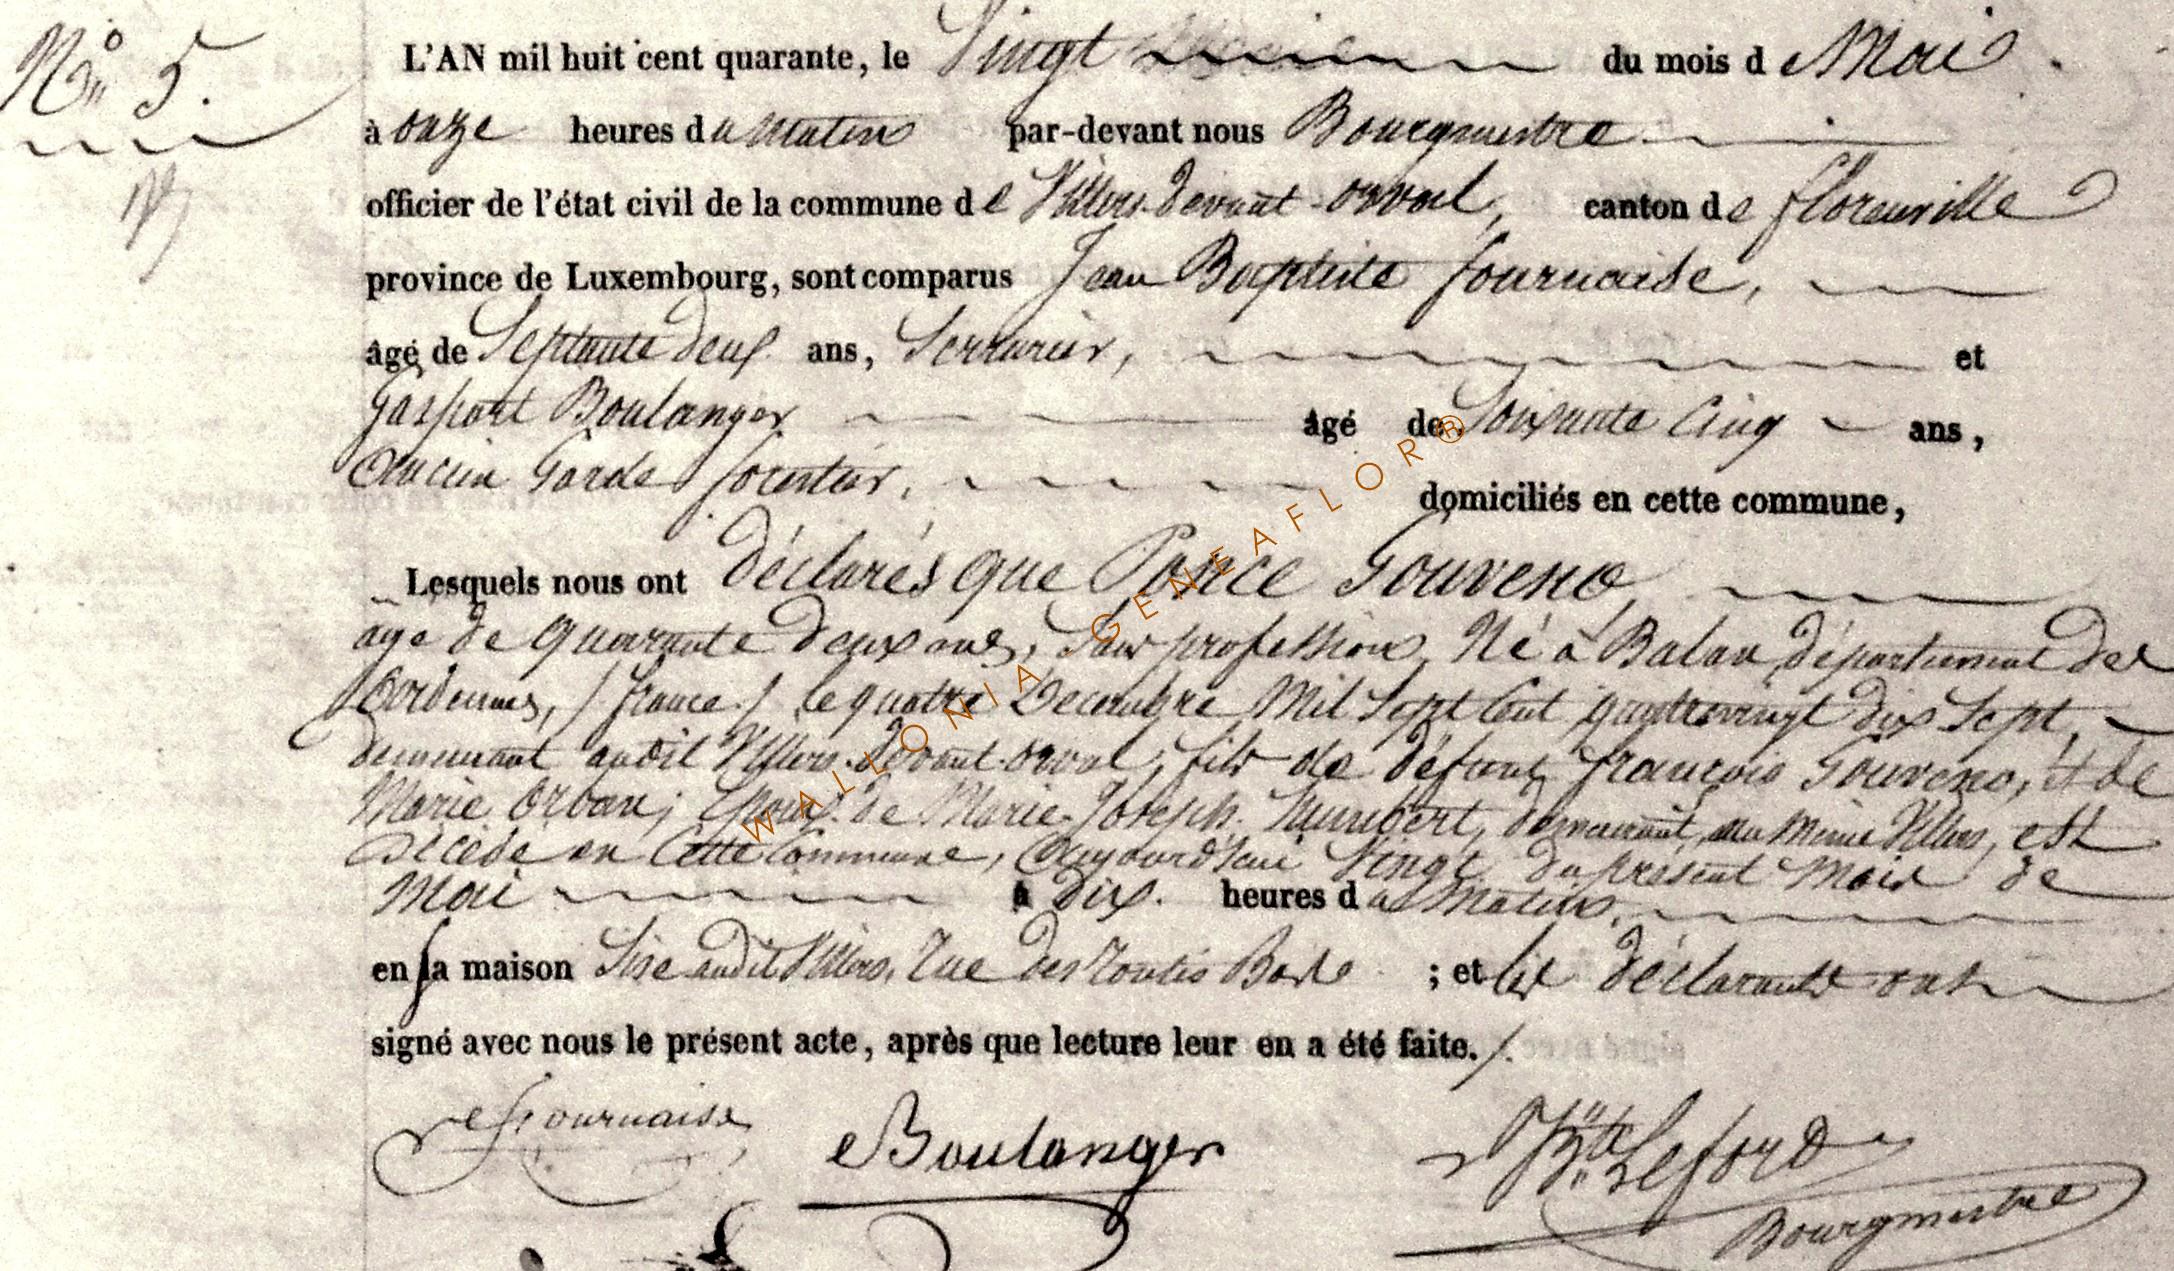 N° 5.
L'AN mil huit cent quarante, le Vingt du mois de Mai.
à onze heures du matin par-devant nous Bourgmestre
officier de l'état civil de la commune de Villers-devant-orval, canton de florenville
province de Luxembourg, sont comparus Jean Baptiste fournaise,
âgé de Septante deux ans, Serrurier, et
Gaspart Boulanger âgé de Soixante Cinq ans,
ancien Garde forestier, domiciliés en cette commune,
Lesquels nous ont déclarés que Ponce Gouverno,
âgé de quarante deux ans, Sans profession, Né à Balan, département des
Ardennes, / france / le quatre Decembre Mil Sept Cent quatrevingt dix Sept,
demeurant audit Villers-devant-orval, fils de défunt françois Gouverno, et de
Marie Orban; Epoux de Marie-Joseph Humbert, demeurant au même Villers, est
décédé en Cette Commune, aujourd'hui Vingt du présent Mois de
Mai à dix heures du Matin,
en sa maison Sise audit Villers, Rue des ; et les déclarants ont
signé avec nous le présent acte, après que lecture leur en a été faite./.
fournaise Boulanger Bte Leford
Bourgmestre
WALLONIA GENEAFLOR®